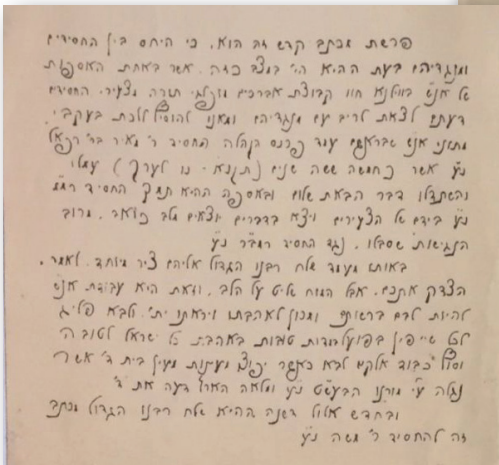 פרשת מכתב קדש זה הוא, כי היחס בין החסידים
ומנגדיהם בעת ההיא הי' במצב כזה, אשר באחת האספות
של אנ"ש בווילנא חוו קבוצת אברכים מופלגי תורה מצעירי החסידים
דעתם לצאת לריב עם מנגדיהם ומאנו להוסיף ללכת בעקבי
מתוני אנ"ש שבראשם עמד פרנס הקהלה החסיד ר' מאיר בר' רפאל
נ"ע אשר כחמשה ששה שנים (תקנא - נו לערך) עמלו
והשתדלו דבר הבאת שלום ובאספה ההיא תמך החסיד
נ"ע בידם של הצעירים ויצא בדברים יוצאים מלב כואב, מרוב
הנגישות שסבלו, נגד החסיד נ"ע
באותו מעמד שלח רבנו הגדול אליהם ציר מיוחד, לאמר,
הצדק אתכם, אבל המוח שליט על הלב, וזאת היא עבודת אנ"ש
להיות לבם ברשותם ומכוון לאהבתו ויראתו ית', ולבא פליג
לכל שייפין בפועל ומדות טובות באהבת כל ישראל לטוב ה'
וסוף כבוד אלקים לבא כאשר יפוצו מעינות מעין בית ד' אשר
נגלה ע"י מורנו הבעש"ט נ"ע ומלאה הארץ דעה את ד'
ובחדש אלול דשנה ההיא שלח רבנו הגדול מכתב
זה להחסיד ר' משה נ"ע